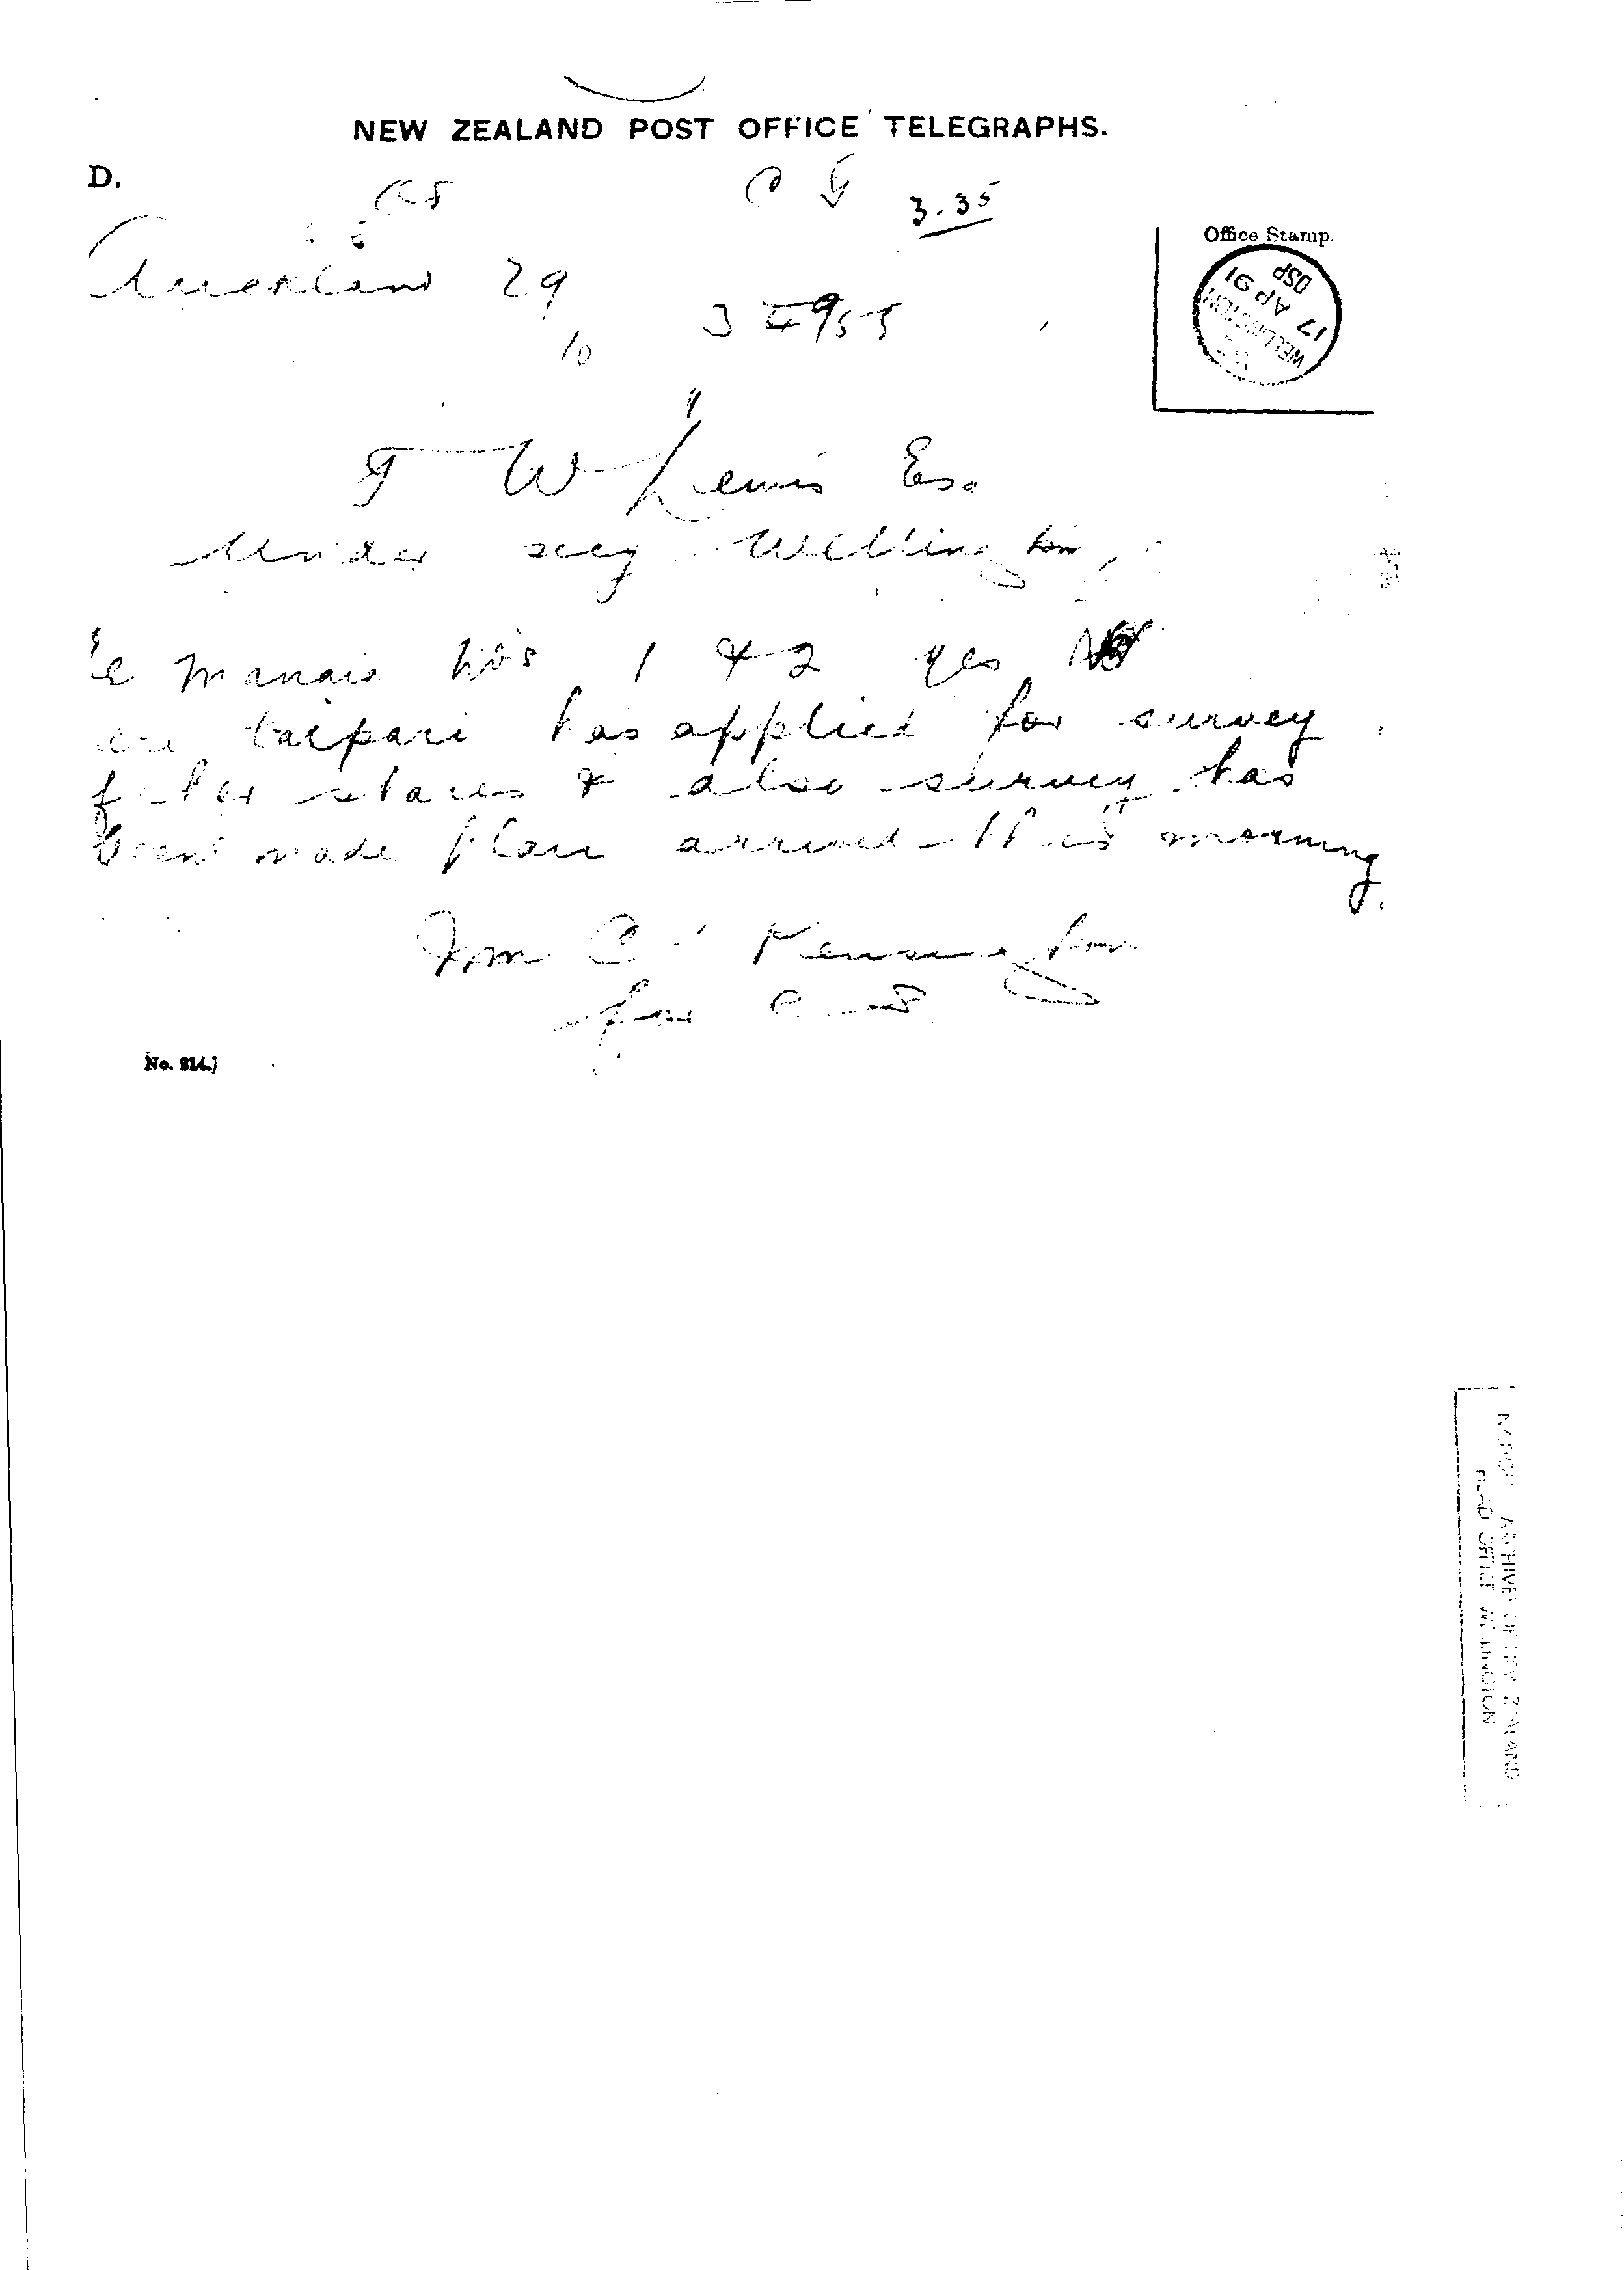 NEW ZEALAND POST OFFICE TELEGRAPHS.
D.
3.35
Office Stamp.
WELLINGTON
17 AP 91
Auckland 29
10
T W Lewis Esq
Under secy Wellington
Manaia No's 1 & 2 yes
taipari has applied for survey
her shares & also survey has
been made plan arrived this morning.
Wm C Kensington
for
No.
NATIONAL ARCHIVES OF NEW ZEALAND
HEAD OFFICE WELLINGTON